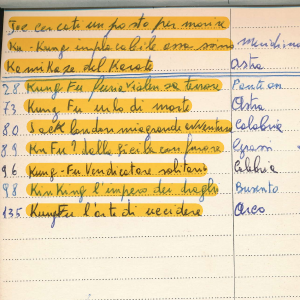 Joe cercati un posto per morire
Ku-Kung implacabile assassino Meridiano
Kamikaze del Karate Astra
28 Kung Fu furia violenza terrore Puntoam
73 Kung Fu urlo di morte Astra
80 Jack London mia grande avventura Calabria
89 KuFu? dalla Sicilia con furore Grassi
96 Kung-Fu vendicatore solitario Calabria
98 KunKung l'impero dei draghi Busento
135 KungFu l'arte di uccidere Arco